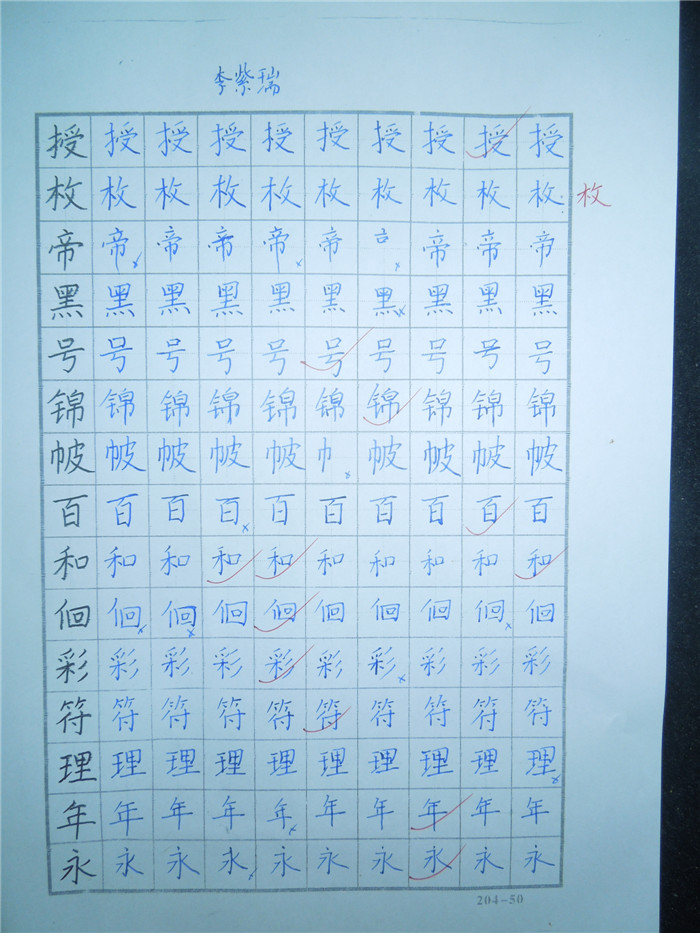 李紫瑞
授授授授授授授授授授
枚枚枚枚枚枚枚枚枚枚枚
帝帝帝帝帝帝亠帝帝帝
黑黑黑黑黑黑黑黑黑黑
号号号号号号号号号号
锦锦锦锦锦锦锦锦锦锦
帔帔帔帔帔巾帔帔帔帔
百百百百百百百百百百
和和和和和和和和和和
佪佪佪佪佪佪佪佪佪佪
彩彩彩彩彩彩彩彩彩彩
符符符符符符符符符符
理理理理理理理理理理
年年年年年年年年年年
永永永永永永永永永永
204-50